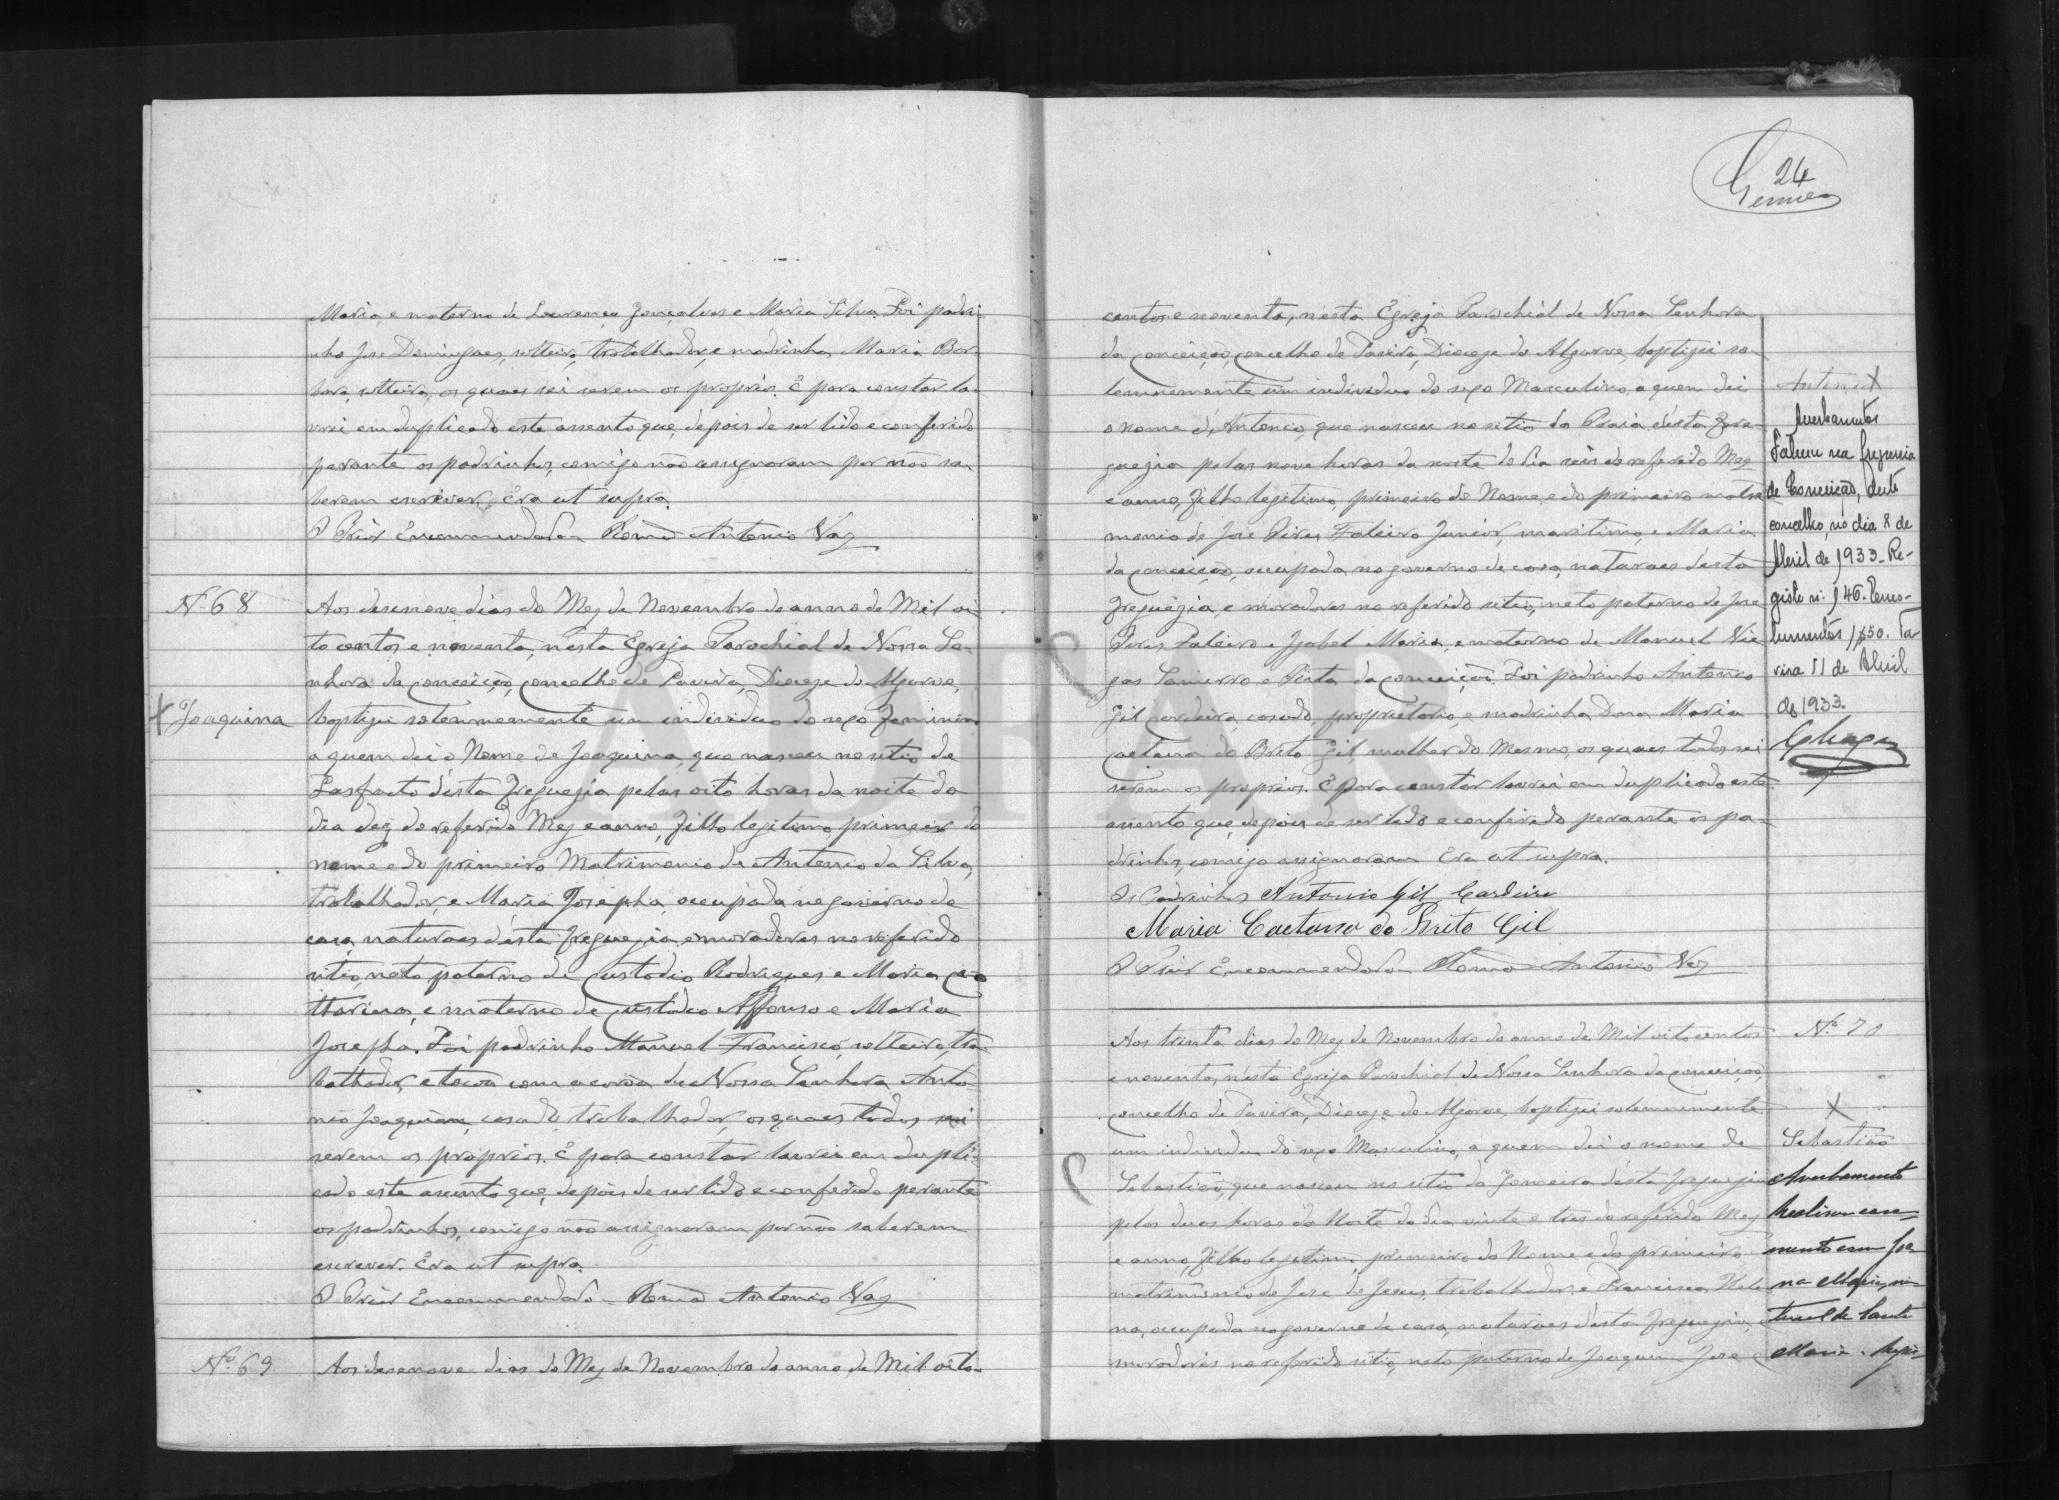 Maria, e materno de Lourenço Gonçalves e Maria Silva. Foi padri-
nho José Domingues, solteiro, trabalhador, e madrinha Maria Bar-
bara, solteira, os quaes sei serem os proprios. E para constar la-
vrei em duplicado este assento que, depois de ser lido e conferido
perante os padrinhos, comigo não assignaram por não sa-
berem escrever. Era ut supra.
O Prior Encommendado Romão Antonio Vaz
Nº 68
Aos desenove dias do Mez de Novembro do anno de Mil oi-
to centos e noventa, n'esta Egreja Parochial de Nossa Se-
nhora da Conceição, concelho de Tavira, Dioceze do Algarve,
Joaquina
baptizei solemnemente um individuo do sexo feminino
a quem dei o Nome de Joaquina, que nasceu no sitio de
d'esta Freguezia pelas oito horas da noite do
dia dez do referido Mez e anno, filho legitimo primeiro do
nome e do primeiro Matrimonio de Antonio da Silva,
trabalhador, e Maria Josepha, occupada no governo de
casa, naturaes d'esta Freguezia, e moradores no referido
sitio, neto paterno de Custodio Rodrigues e Maria Ca-
tharina, e materno de Custodio Affonso e Maria
Josepha. Foi padrinho Manuel Francisco, solteiro, tra-
balhador, e tocou com a corôa de Nossa Senhora Anto-
nio Joaquim, casado, trabalhador, os quaes todos sei
serem os proprios. E para constar lavrei em dupli-
cado este assento que, depois de ser lido e conferido perante
os padrinhos, comigo não assignaram por não saberem
escrever. Era ut supra.
O Prior Encommendado Romão Antonio Vaz
Nº 69
Aos desenove dias do Mez de Novembro do anno de Mil oito-
24
centos e noventa, n'esta Egreja Parochial de Nossa Senhora
da Conceição, concelho de Tavira, Dioceze do Algarve, baptizei so-
lemnemente um individuo do sexo Masculino, a quem dei
o nome d'Antonio, que nasceu no sitio da Praia, d'esta Fre-
guezia pelas nove horas da noite do dia seis do referido Mez
e anno, filho legitimo, primeiro do Nome e do primeiro matri-
monio de José Pires Faleiro Junior, maritimo, e Maria
da Conceição, occupada no governo de casa, naturaes d'esta
Freguezia, e moradores no referido sitio, neto paterno de José
Pires Faleiro e Izabel Maria, e materno de Manuel Vie
gas e Rita da Conceição. Foi padrinho Antonio
Gil Cardeira, casado, proprietario, e madrinha Dona Maria
Caetana do Brito Gil, mulher do Mesmo, os quaes todos sei
serem os proprios. E para constar lavrei em duplicado este
assento que, depois de ser lido e conferido perante os pa-
drinhos, comigo assignaram. Era ut supra.
Os Padrinhos Antonio Gil Cardeira
Maria Caetana do Brito Gil
O Prior Encommendado Romão Antonio Vaz
Antonio
Averbamentos
Faleceu na freguesia
de Conceição, deste
concelho, no dia 8 de
Abril de 1933. Re-
gisto nº 146. Emo-
lumentos 1$50. Ta
vira 11 de Abril
de 1933.
Nº 70
Aos trinta dias do Mez de Novembro do anno de Mil oito centos
e noventa, n'esta Egreja Parochial de Nossa Senhora da Conceição,
concelho de Tavira, Dioceze do Algarve, baptizei solemnemente
um individuo do sexo Masculino, a quem dei o nome de
Sebastião, que nasceu no sitio da d'esta Freguezia
pelas duas horas da Noite do dia vinte e tres do referido Mez
e anno, filho legitimo, primeiro do Nome e do primeiro
matrimonio de José de Jesus, trabalhador, e Francisca
na, occupada no governo de casa, naturaes d'esta Freguezia,
moradores no referido sitio, neto paterno de Joaquim José e
Sebastião
Averbamento
Realisou casa-
mento com Joa
na Maria, na
tural de Santa
Maria.
ADFAR